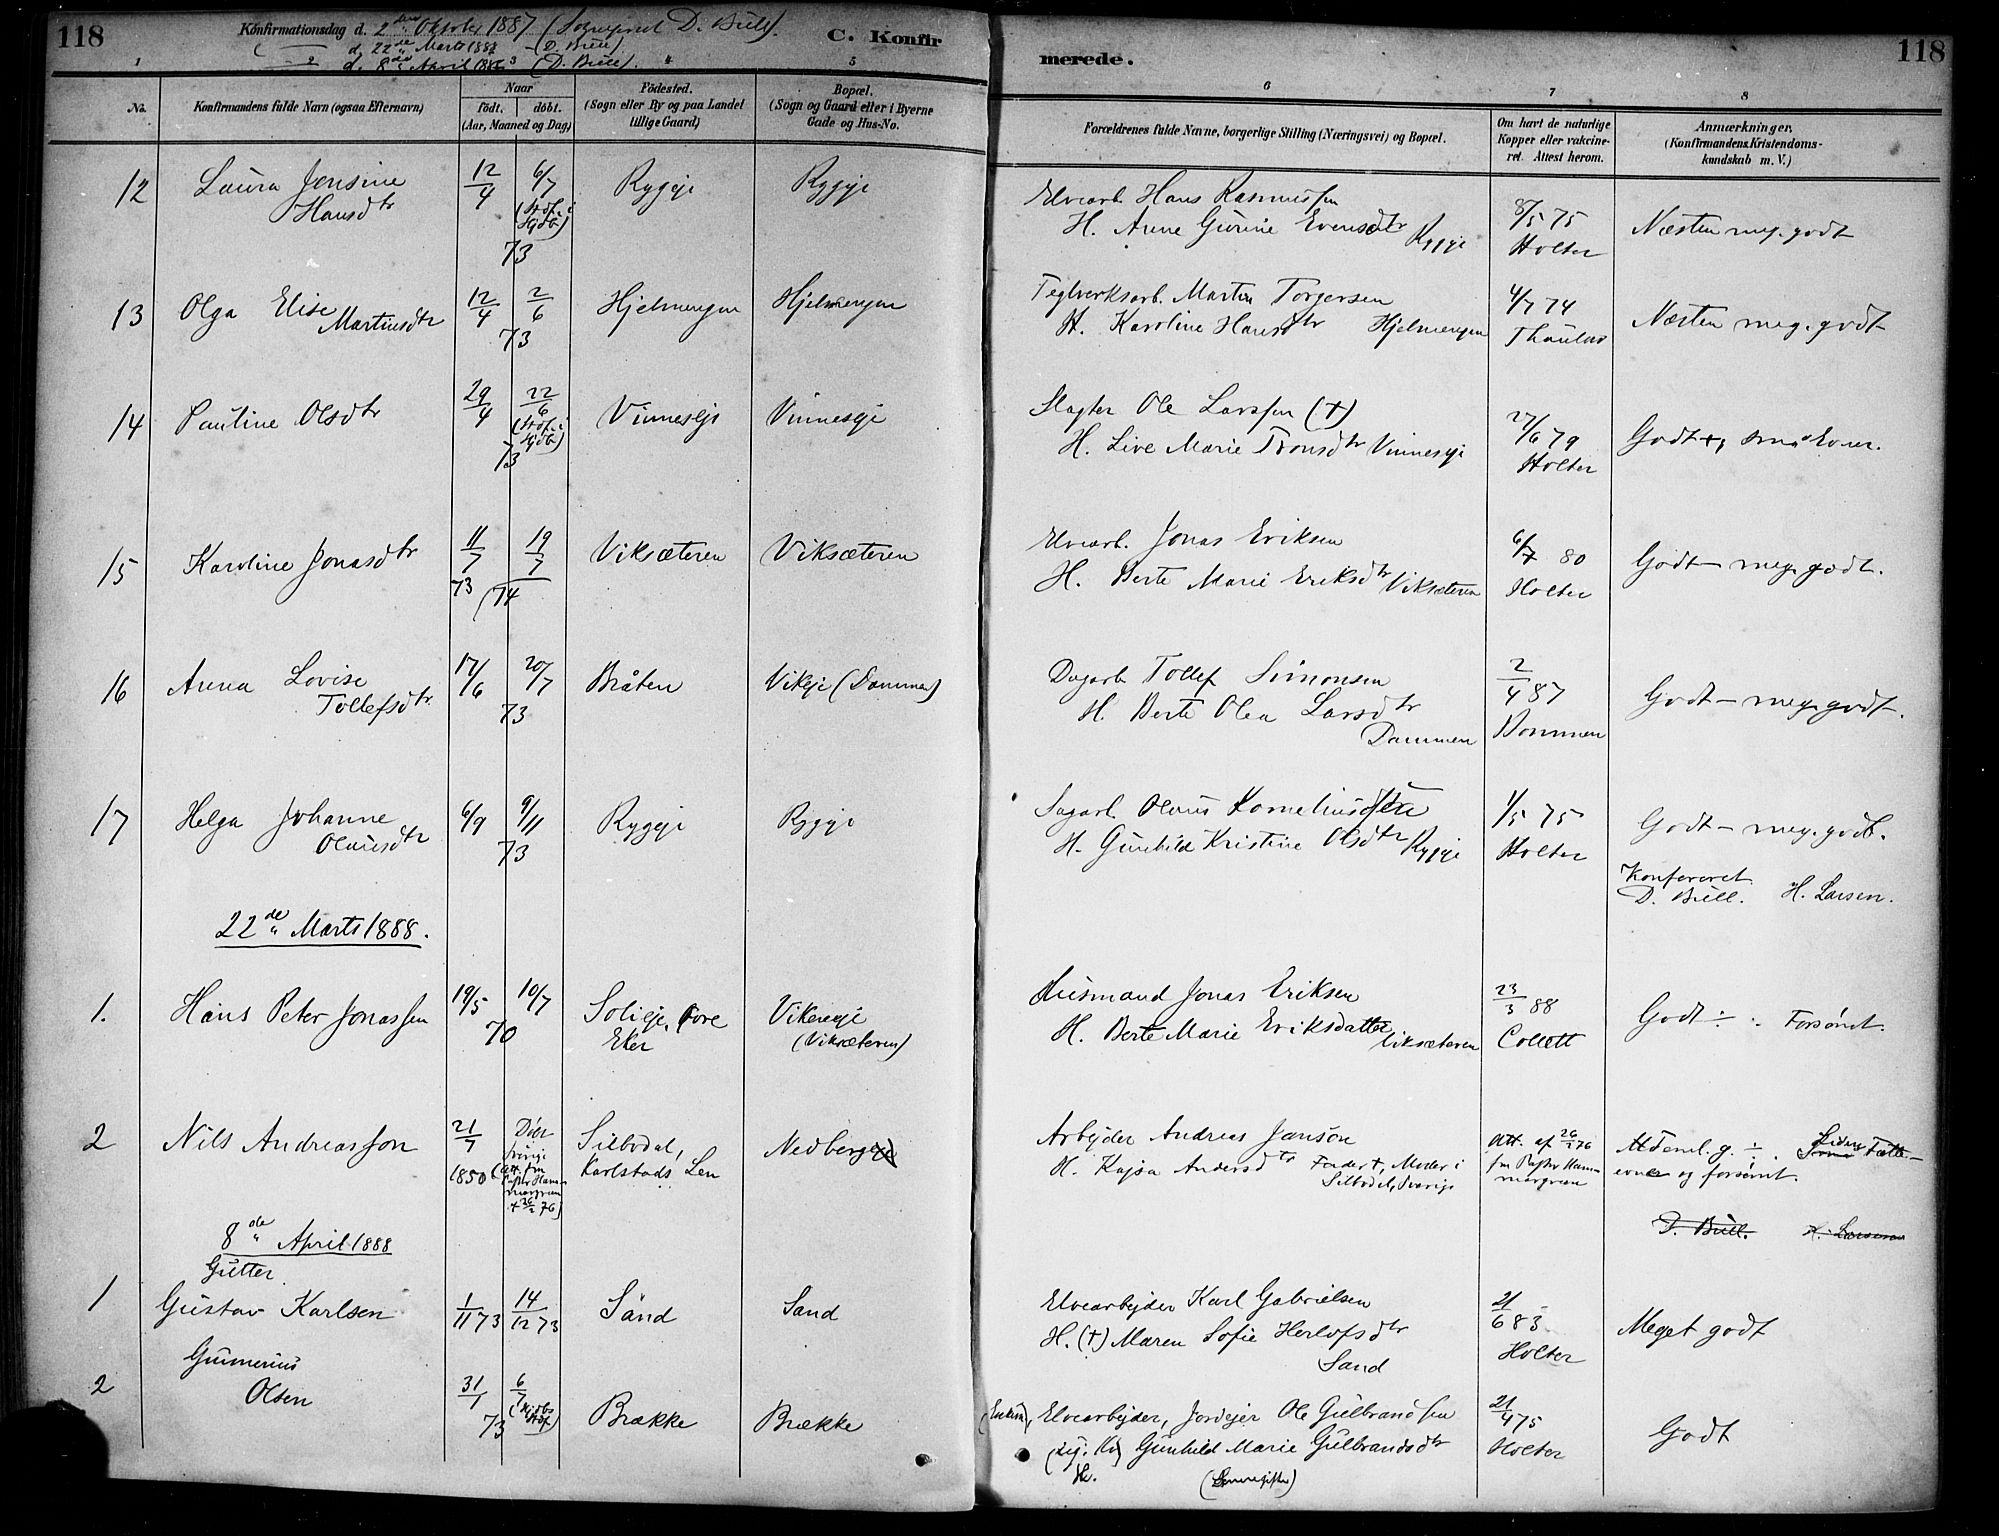 118
Konfirmationsdag d. 2den Oktober 1887 (Sogneprest D. Bull).
d. 22de Marts 1888 - (D. Bull).
d. 8de April 188 (D. Bull).
C. Konfir
merede.
118
1
2
3
4
5
6
7
8
No.
Konfirmandens fulde Navn (ogsaa Efternavn)
Naar
født.
døbt.
(Aar, Maaned og Dag)
Fødested.
(Sogn eller By og paa Landet
tillige Gaard)
Bopæl.
(Sogn og Gaard eller i Byerne
Gade og Hus-No.
Forældrenes fulde Navne, borgerlige Stilling (Næringsvei) og Bopæl.
Om havt de naturlige
Kopper eller vakcine-
ret. Attest herom.
Anmærkninger.
(Konfirmandens Kristendoms-
kundskab m. V.)
12
Laura Jensine
Hansdtr
12/4
6/7
(Stdf. i
Hjdb.)
73
Ryggeje
Ryggeje
Elvearb. Hans Rasmussen
H. Anne Gurine Evensdtr Ryggeje
8/5 75
Holter
Næsten meg. godt
13
Olga Elise
Martinsdtr
12/4
2/6
73
Hjelmengen
Hjelmengen
Teglverksarb. Martin Torgersen
H. Karoline Hansdtr Hjelmengen
4/7 74
Thaulow
Næsten meg. godt
14
Pauline Olsdtr
29/4
22/6
(Stdf. i
Hjdb.)
73
Vinneseje
Vinneseje
Slagter Ole Larssen (†)
H. Live Marie Tronsdtr Vinneseje
27/6 79
Holter
Godt + små Evner.
15
Karoline Jonasdtr
11/7
19/7
73
74
Viksæteren
Viksæteren
Elvearb. Jonas Eriksen
H. Berte Marie Eriksdtr Viksæteren
6/7 80
Holter
Godt – meg. godt.
16
Anna Lovise
Tollefsdtr
17/6
20/7
73
Bråten
Vikeje (Dammen)
Dagarb. Tollef Simonsen
H. Berte Olea Larsdtr
Dammen
2/4 87
Godt – meg. godt.
17
Helga Johanne
Olausdtr
6/9
9/11
73
Ryggeje
Ryggeje
Sagarb. Olaus Korneliussen
H. Gunhild Kristine Olsdtr Ryggeje
1/5 75
Holter
Godt – meg. godt.
Konfereret
D. Bull. H. Larsen.
22de Marts 1888.
1.
Hans Peter Jonassen
19/5
10/7
70
Solieje, Øvre
Eker
Vikereje
(Viksæteren)
Husmand Jonas Eriksen
H. Berte Marie Eriksdatter Viksæteren
23/3 88
Collett
Godt ÷. Forsømt.
2
Nils Andreasson
21/7
1850
Døbt
Sverige
Att. fra
Pastor Ham-
margren
26/2 76)
Silbodal,
Karlstads Len
Nedberg
Arbejder Andreas Janson
H. Kajsa Andersdtr Fader †, Moder i
Silbodal, Sverige
Att. af 26/2 76
fra Pastor Ham-
margren
Teml. g. ÷. Fatte-
evne og forsømt.
D. Bull. H. Larsen
8de April 1888
Gutter.
1
Gustav Karlsen
1/11 73
14/12 73
Sand
Sand
Elvearbejder Karl Gabrielsen
H. (†) Maren Sofie Herlofsdtr
Sand
21/6 83
Holter
Meget godt
2
Gunnerius
Olsen
31/1
6/7
73
Brække
Brække
Elvearbejder, Jordejer Ole Gulbrandsen
Gunhild Marie Gulbrandsdtr
21/4 75
Holter
Godt